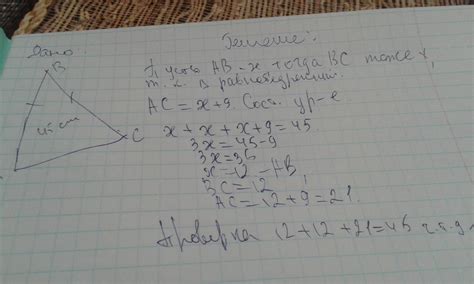 Дано:
Решение:
B
45 cm
C
Пусть AB - x тогда BC тоже x,
т.к. в равнобедренном.
AC = x + 9. Сост. ур-е
x + x + x + 9 = 45
3x = 45 - 9
3x = 36
x = 12 - AB,
BC = 12
AC = 12 + 9 = 21.
Проверка 12 + 12 + 21 = 45